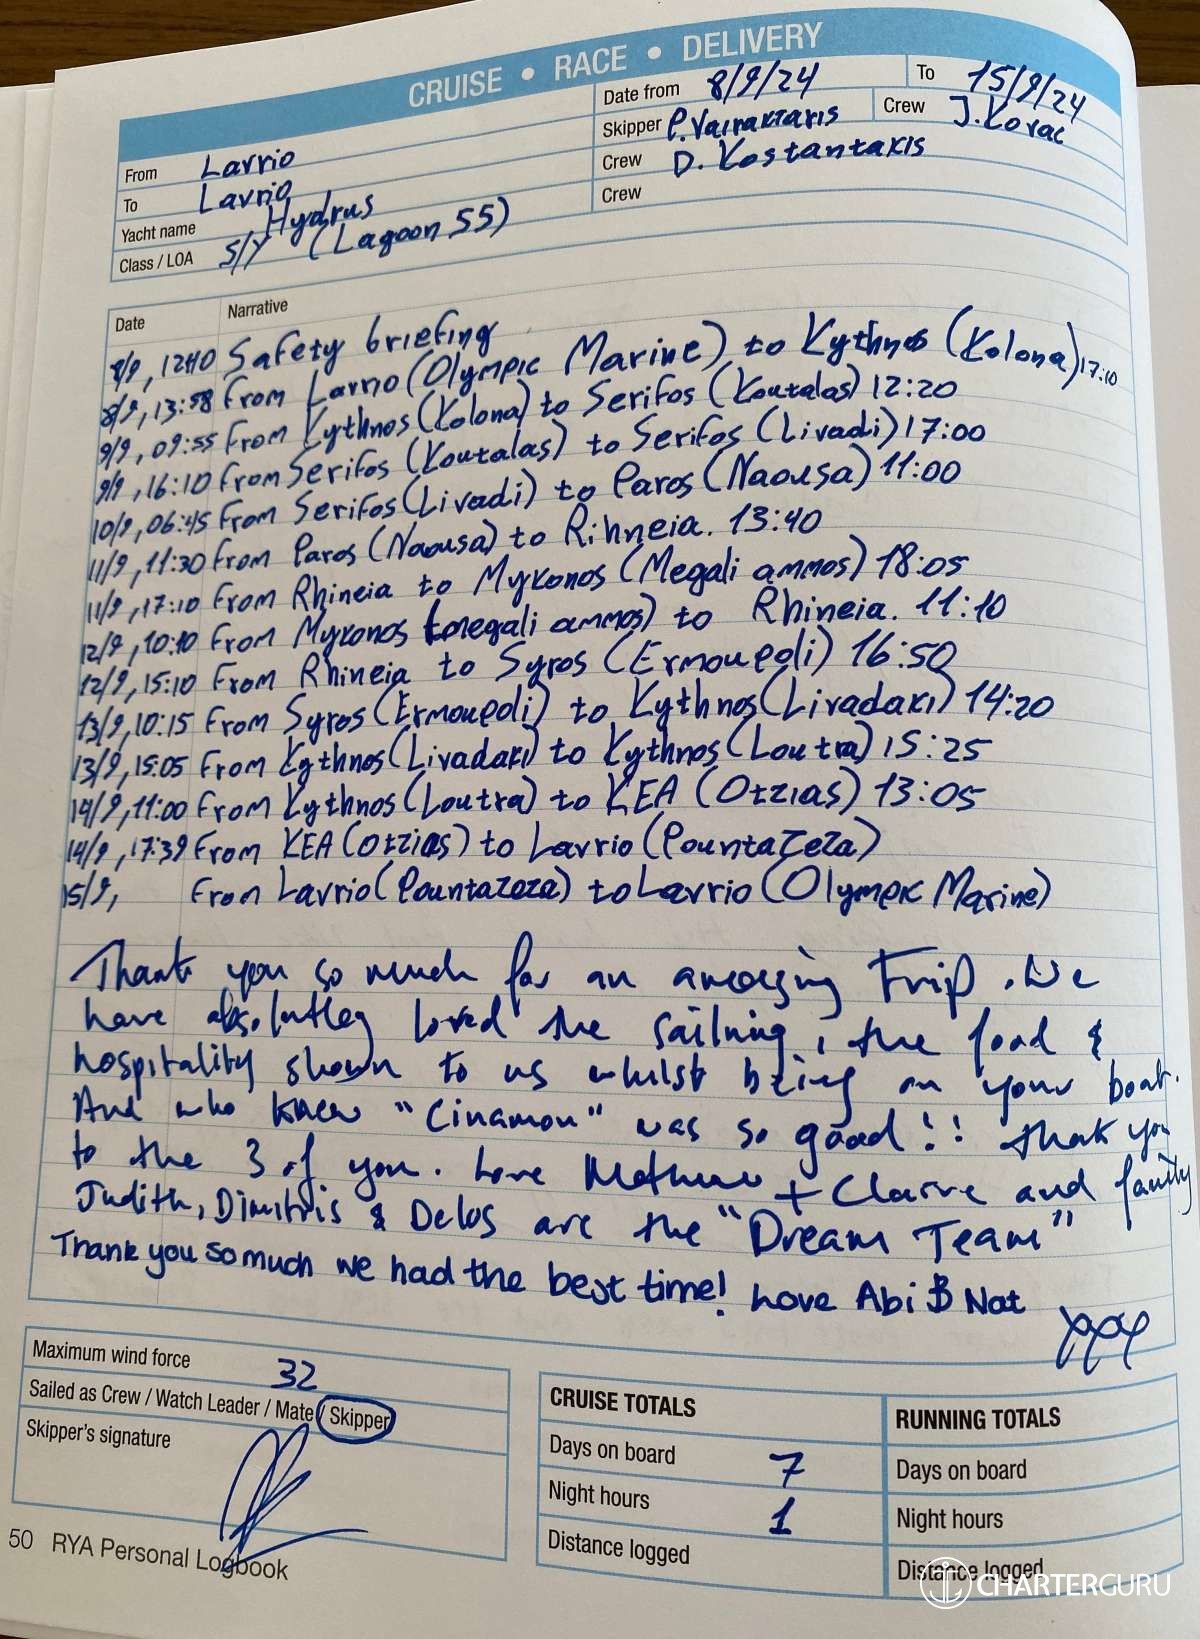 CRUISE • RACE • DELIVERY
From Lavrio
To Lavrio
Yacht name Hydrus
Class / LOA S/Y (Lagoon 55)
Date from 8/9/24 To 15/9/24
Skipper P.Vairaktaris Crew J.Kovac
Crew D. Kostantakis
Crew
Date Narrative
8/9, 1240 Safety briefing
8/9, 13:58 From Lavrio (Olympic Marine) to Kythnos (Kolona) 17:10
9/9, 09:55 From Kythnos (Kolona) to Serifos (Koutalas) 12:20
9/9, 16:10 From Serifos (Koutalas) to Serifos (Livadi) 17:00
10/9, 06:45 From Serifos (Livadi) to Paros (Naousa) 11:00
11/9, 11:30 From Paros (Naousa) to Rihneia. 13:40
11/9, 17:10 From Rhineia to Mykonos (Megali ammos) 18:05
12/9, 10:10 From Mykonos (megali ammos) to Rhineia. 11:10
12/9, 15:10 From Rhineia to Syros (Ermoupoli) 16:50
13/9, 10:15 From Syros (Ermoupoli) to Kythnos (Livadaki) 14:20
13/9, 15:05 From Kythnos (Livadaki) to Kythnos (Loutra) 15:25
14/9, 11:00 From Kythnos (Loutra) to KEA (Otzias) 13:05
14/9, 17:39 From KEA (Otzias) to Lavrio (Pountazeza)
15/9, From Lavrio (Pountazeza) to Lavrio (Olympic Marine)
Thank you so much for an amazing trip. We
have absolutley loved the sailning, the food &
hospitality shown to us whilst being on your boat.
And who knew "Cinamon" was so good!! Thank you
to the 3 of you. Love Mathew + Claire and family
Judith, Dimitris & Delos are the "Dream Team"
Thank you so much we had the best time! Love Abi & Nat
xxx
Maximum wind force 32
Sailed as Crew / Watch Leader / Mate / Skipper
Skipper's signature
CRUISE TOTALS
Days on board 7
Night hours 1
Distance logged
RUNNING TOTALS
Days on board
Night hours
Distance logged
50 RYA Personal Logbook
CHARTERGURU